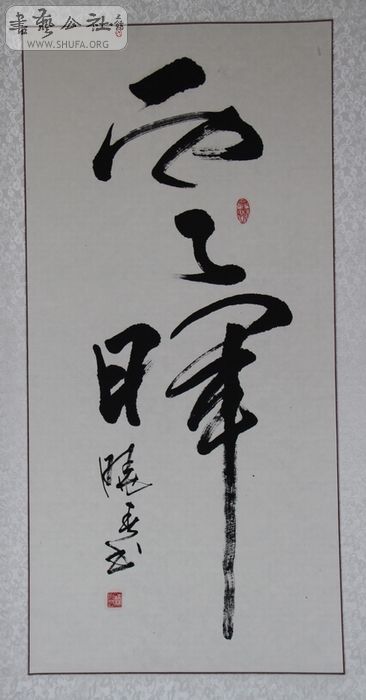 書藝公社
WWW.SHUFA.ORG
雲暉
曉书